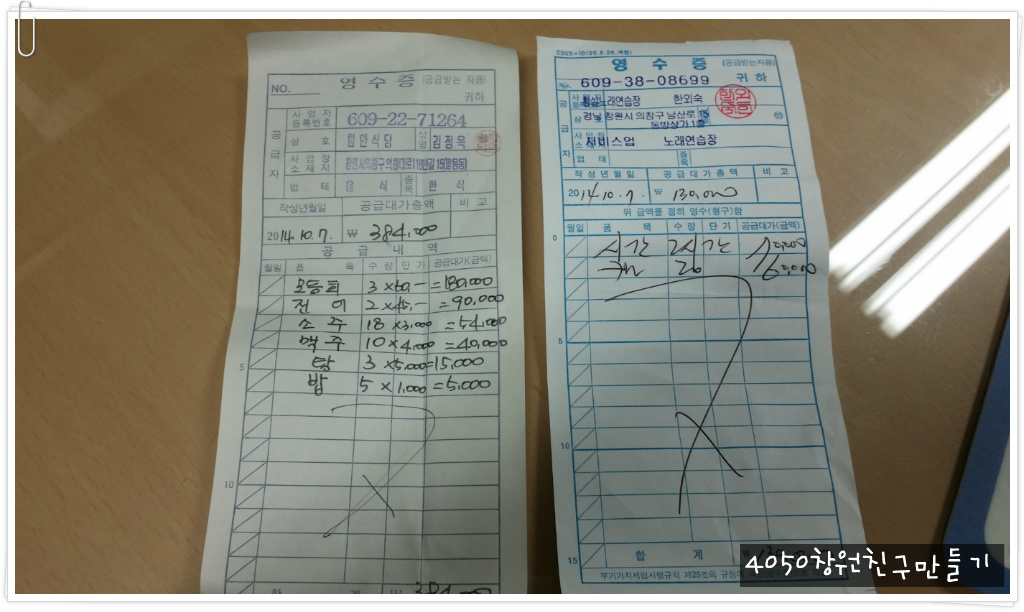 영수증 (공급받는 자용)
NO.
귀하
사업자 등록번호 609-22-71264
상호 함안식당 성명 김정옥
사업장 소재지
업태 음식 종목 한식
작성년월일 공급대가총액 비고
2014.10.7. ₩ 384,000
공급내역
월일 품목 수량 단가 공급대가(금액)
모듬회 3 ×60,- =180,000
전어 2 ×45,- =90,000
소주 18 ×3,000 =54,000
맥주 10 ×4,000 =40,000
탕 3 ×5,000=15,000
밥 5 ×1,000=5,000
5
10
합계 ₩ 384,000
영수증 (공급받는자용)
No. 609-38-08699 귀하
노래연습장 한외숙
경남 창원시 의창구 남산로
동방상가 1층
서비스업 노래연습장
업태 종목
작성년월일 공급대가총액 비고
2014.10.7. ₩ 130,000
위 금액을 정히 영수(청구)함
월일 품목 수량 단가 공급대가(금액)
0
시간 2시간
캔 20 60,000
5
10
15
합계 ₩
부가가치세법시행규칙 제25조의
4050창원친구만들기